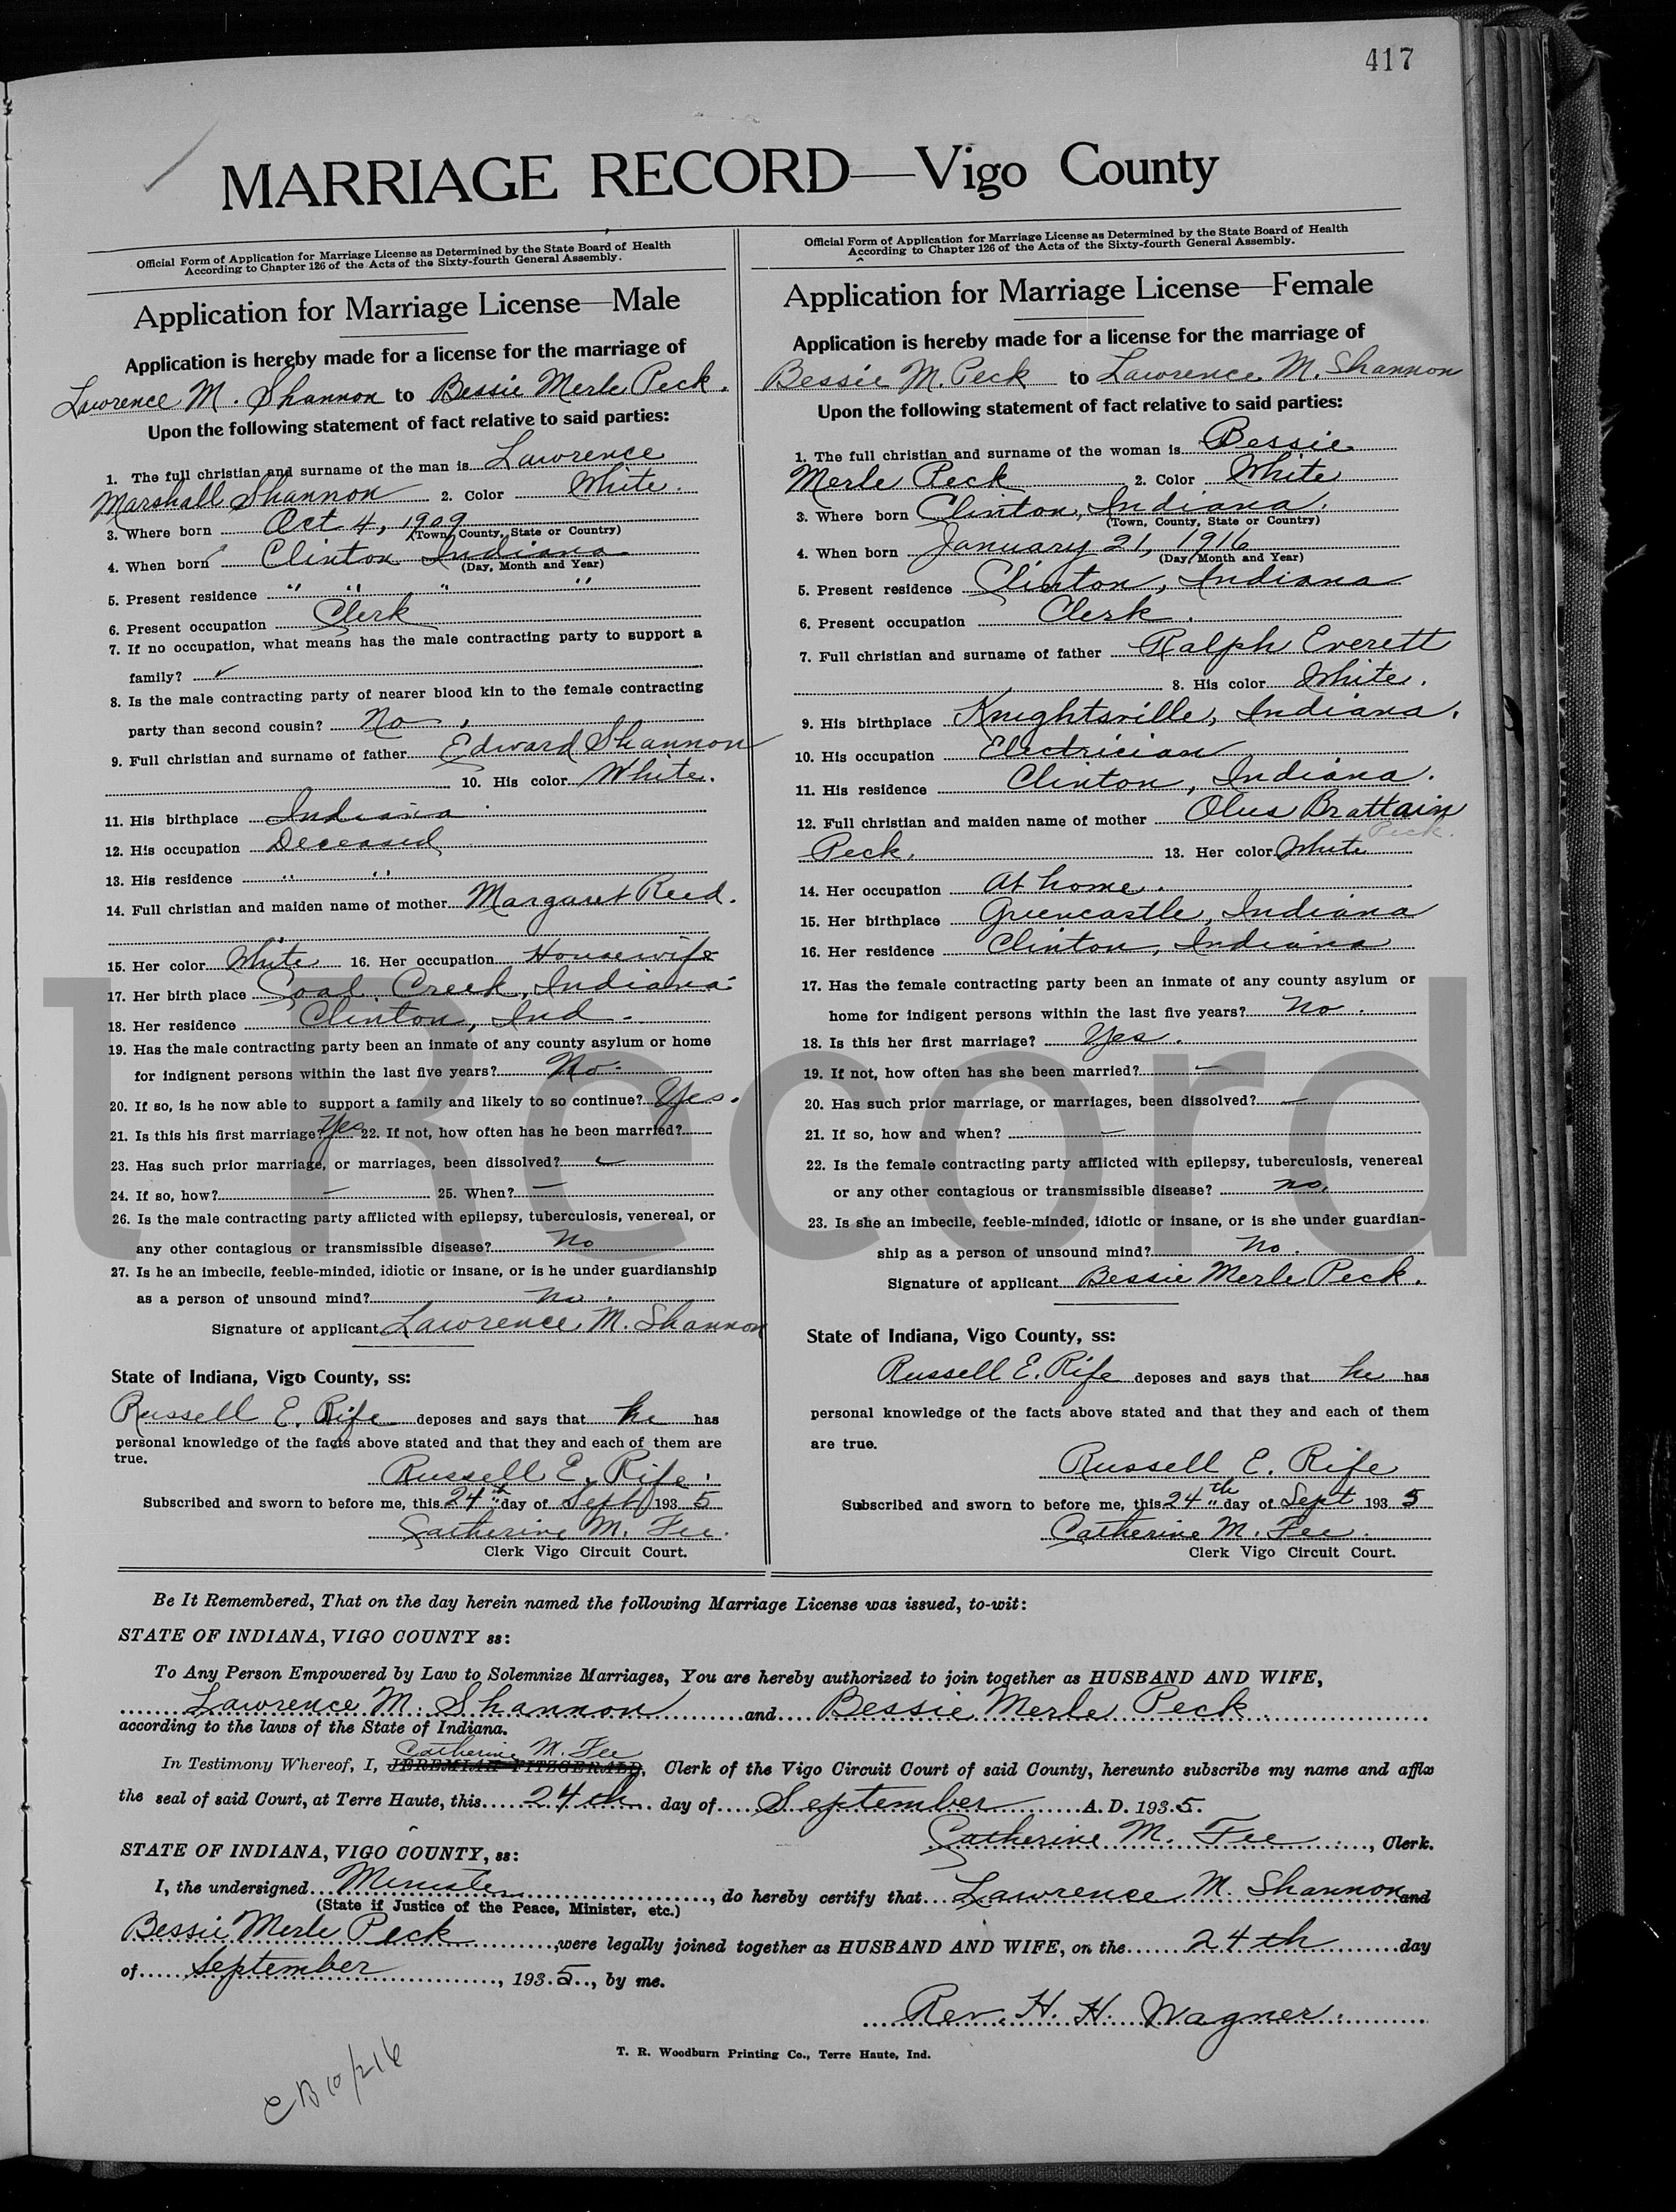 417
MARRIAGE RECORD—Vigo County
Official Form of Application for Marriage License as Determined by the State Board of Health
According to Chapter 126 of the Acts of the Sixty-fourth General Assembly.
Application for Marriage License—Male
Application is hereby made for a license for the marriage of
Lawrence M. Shannon to Bessie Merle Peck.
Upon the following statement of fact relative to said parties:
1. The full christian and surname of the man is Lawrence
Marshall Shannon 2. Color White.
3. Where born Oct 4, 1909
(Town, County, State or Country)
4. When born Clinton Indiana
(Day, Month and Year)
5. Present residence " " " "
6. Present occupation Clerk
7. If no occupation, what means has the male contracting party to support a
family? ✓
8. Is the male contracting party of nearer blood kin to the female contracting
party than second cousin? No.
9. Full christian and surname of father Edward Shannon
10. His color White.
11. His birthplace Indiana
12. His occupation Deceased
13. His residence " "
14. Full christian and maiden name of mother Margaret Reed.
15. Her color White 16. Her occupation Housewife
17. Her birth place Coal Creek, Indiana
18. Her residence Clinton, Ind.
19. Has the male contracting party been an inmate of any county asylum or home
for indignent persons within the last five years? No.
20. If so, is he now able to support a family and likely to so continue? Yes.
21. Is this his first marriage? Yes 22. If not, how often has he been married?
23. Has such prior marriage, or marriages, been dissolved? ✓
24. If so, how? — 25. When? —
26. Is the male contracting party afflicted with epilepsy, tuberculosis, venereal, or
any other contagious or transmissible disease? No
27. Is he an imbecile, feeble-minded, idiotic or insane, or is he under guardianship
as a person of unsound mind? No.
Signature of applicant Lawrence M. Shannon
State of Indiana, Vigo County, ss:
Russell E. Rife deposes and says that he has
personal knowledge of the facts above stated and that they and each of them are
true.
Russell E. Rife.
Subscribed and sworn to before me, this 24th day of Sept 1935
Catherine M. Fee.
Clerk Vigo Circuit Court.
Official Form of Application for Marriage License as Determined by the State Board of Health
According to Chapter 126 of the Acts of the Sixty-fourth General Assembly.
Application for Marriage License—Female
Application is hereby made for a license for the marriage of
Bessie M. Peck to Lawrence M. Shannon
Upon the following statement of fact relative to said parties:
1. The full christian and surname of the woman is Bessie
Merle Peck 2. Color White
3. Where born Clinton, Indiana.
(Town, County, State or Country)
4. When born January 21, 1916
(Day, Month and Year)
5. Present residence Clinton, Indiana
6. Present occupation Clerk.
7. Full christian and surname of father Ralph Everett
Peck.
8. His color White.
9. His birthplace Knightsville, Indiana.
10. His occupation Electrician
11. His residence Clinton, Indiana.
12. Full christian and maiden name of mother Olus Brattain
Peck. 13. Her color White
14. Her occupation At home.
15. Her birthplace Greencastle, Indiana
16. Her residence Clinton, Indiana
17. Has the female contracting party been an inmate of any county asylum or
home for indigent persons within the last five years? No.
18. Is this her first marriage? Yes.
19. If not, how often has she been married? —
20. Has such prior marriage, or marriages, been dissolved? —
21. If so, how and when? —
22. Is the female contracting party afflicted with epilepsy, tuberculosis, venereal
or any other contagious or transmissible disease? no.
23. Is she an imbecile, feeble-minded, idiotic or insane, or is she under guardian-
ship as a person of unsound mind? No.
Signature of applicant Bessie Merle Peck.
State of Indiana, Vigo County, ss:
Russell E. Rife deposes and says that he has
personal knowledge of the facts above stated and that they and each of them
are true.
Russell E. Rife
Subscribed and sworn to before me, this 24th day of Sept 1935
Catherine M. Fee.
Clerk Vigo Circuit Court.
Be It Remembered, That on the day herein named the following Marriage License was issued, to-wit:
STATE OF INDIANA, VIGO COUNTY ss:
To Any Person Empowered by Law to Solemnize Marriages, You are hereby authorized to join together as HUSBAND AND WIFE,
Lawrence M. Shannon and Bessie Merle Peck
according to the laws of the State of Indiana.
Catherine M. Fee
In Testimony Whereof, I, JEREMIAH FITZGERALD, Clerk of the Vigo Circuit Court of said County, hereunto subscribe my name and affix
the seal of said Court, at Terre Haute, this 24th day of September A. D. 1935.
Catherine M. Fee, Clerk.
STATE OF INDIANA, VIGO COUNTY, ss:
I, the undersigned Minister, do hereby certify that Lawrence M. Shannon and
(State if Justice of the Peace, Minister, etc.)
Bessie Merle Peck, were legally joined together as HUSBAND AND WIFE, on the 24th day
of September, 1935, by me.
Rev. H. H. Wagner.
T. R. Woodburn Printing Co., Terre Haute, Ind.
l Record